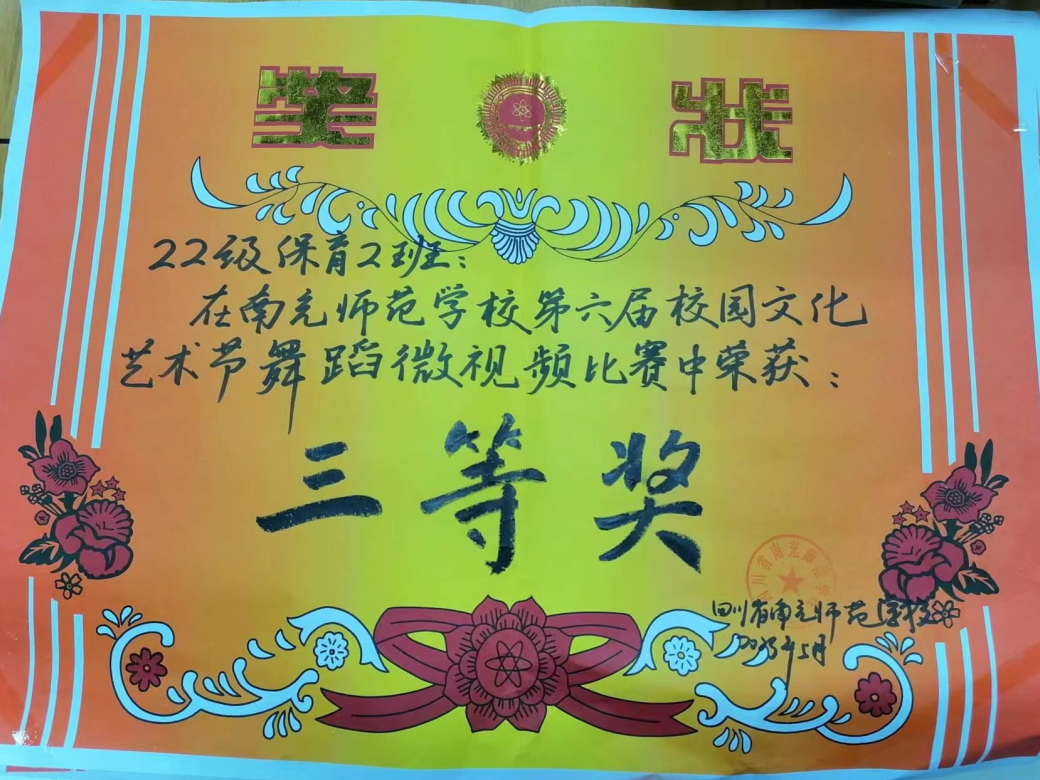 奖状
22级保育2班：
在南充师范学校第六届校园文化
艺术节舞蹈微视频比赛中荣获：
三等奖
四川省南充师范学校
2023年5月